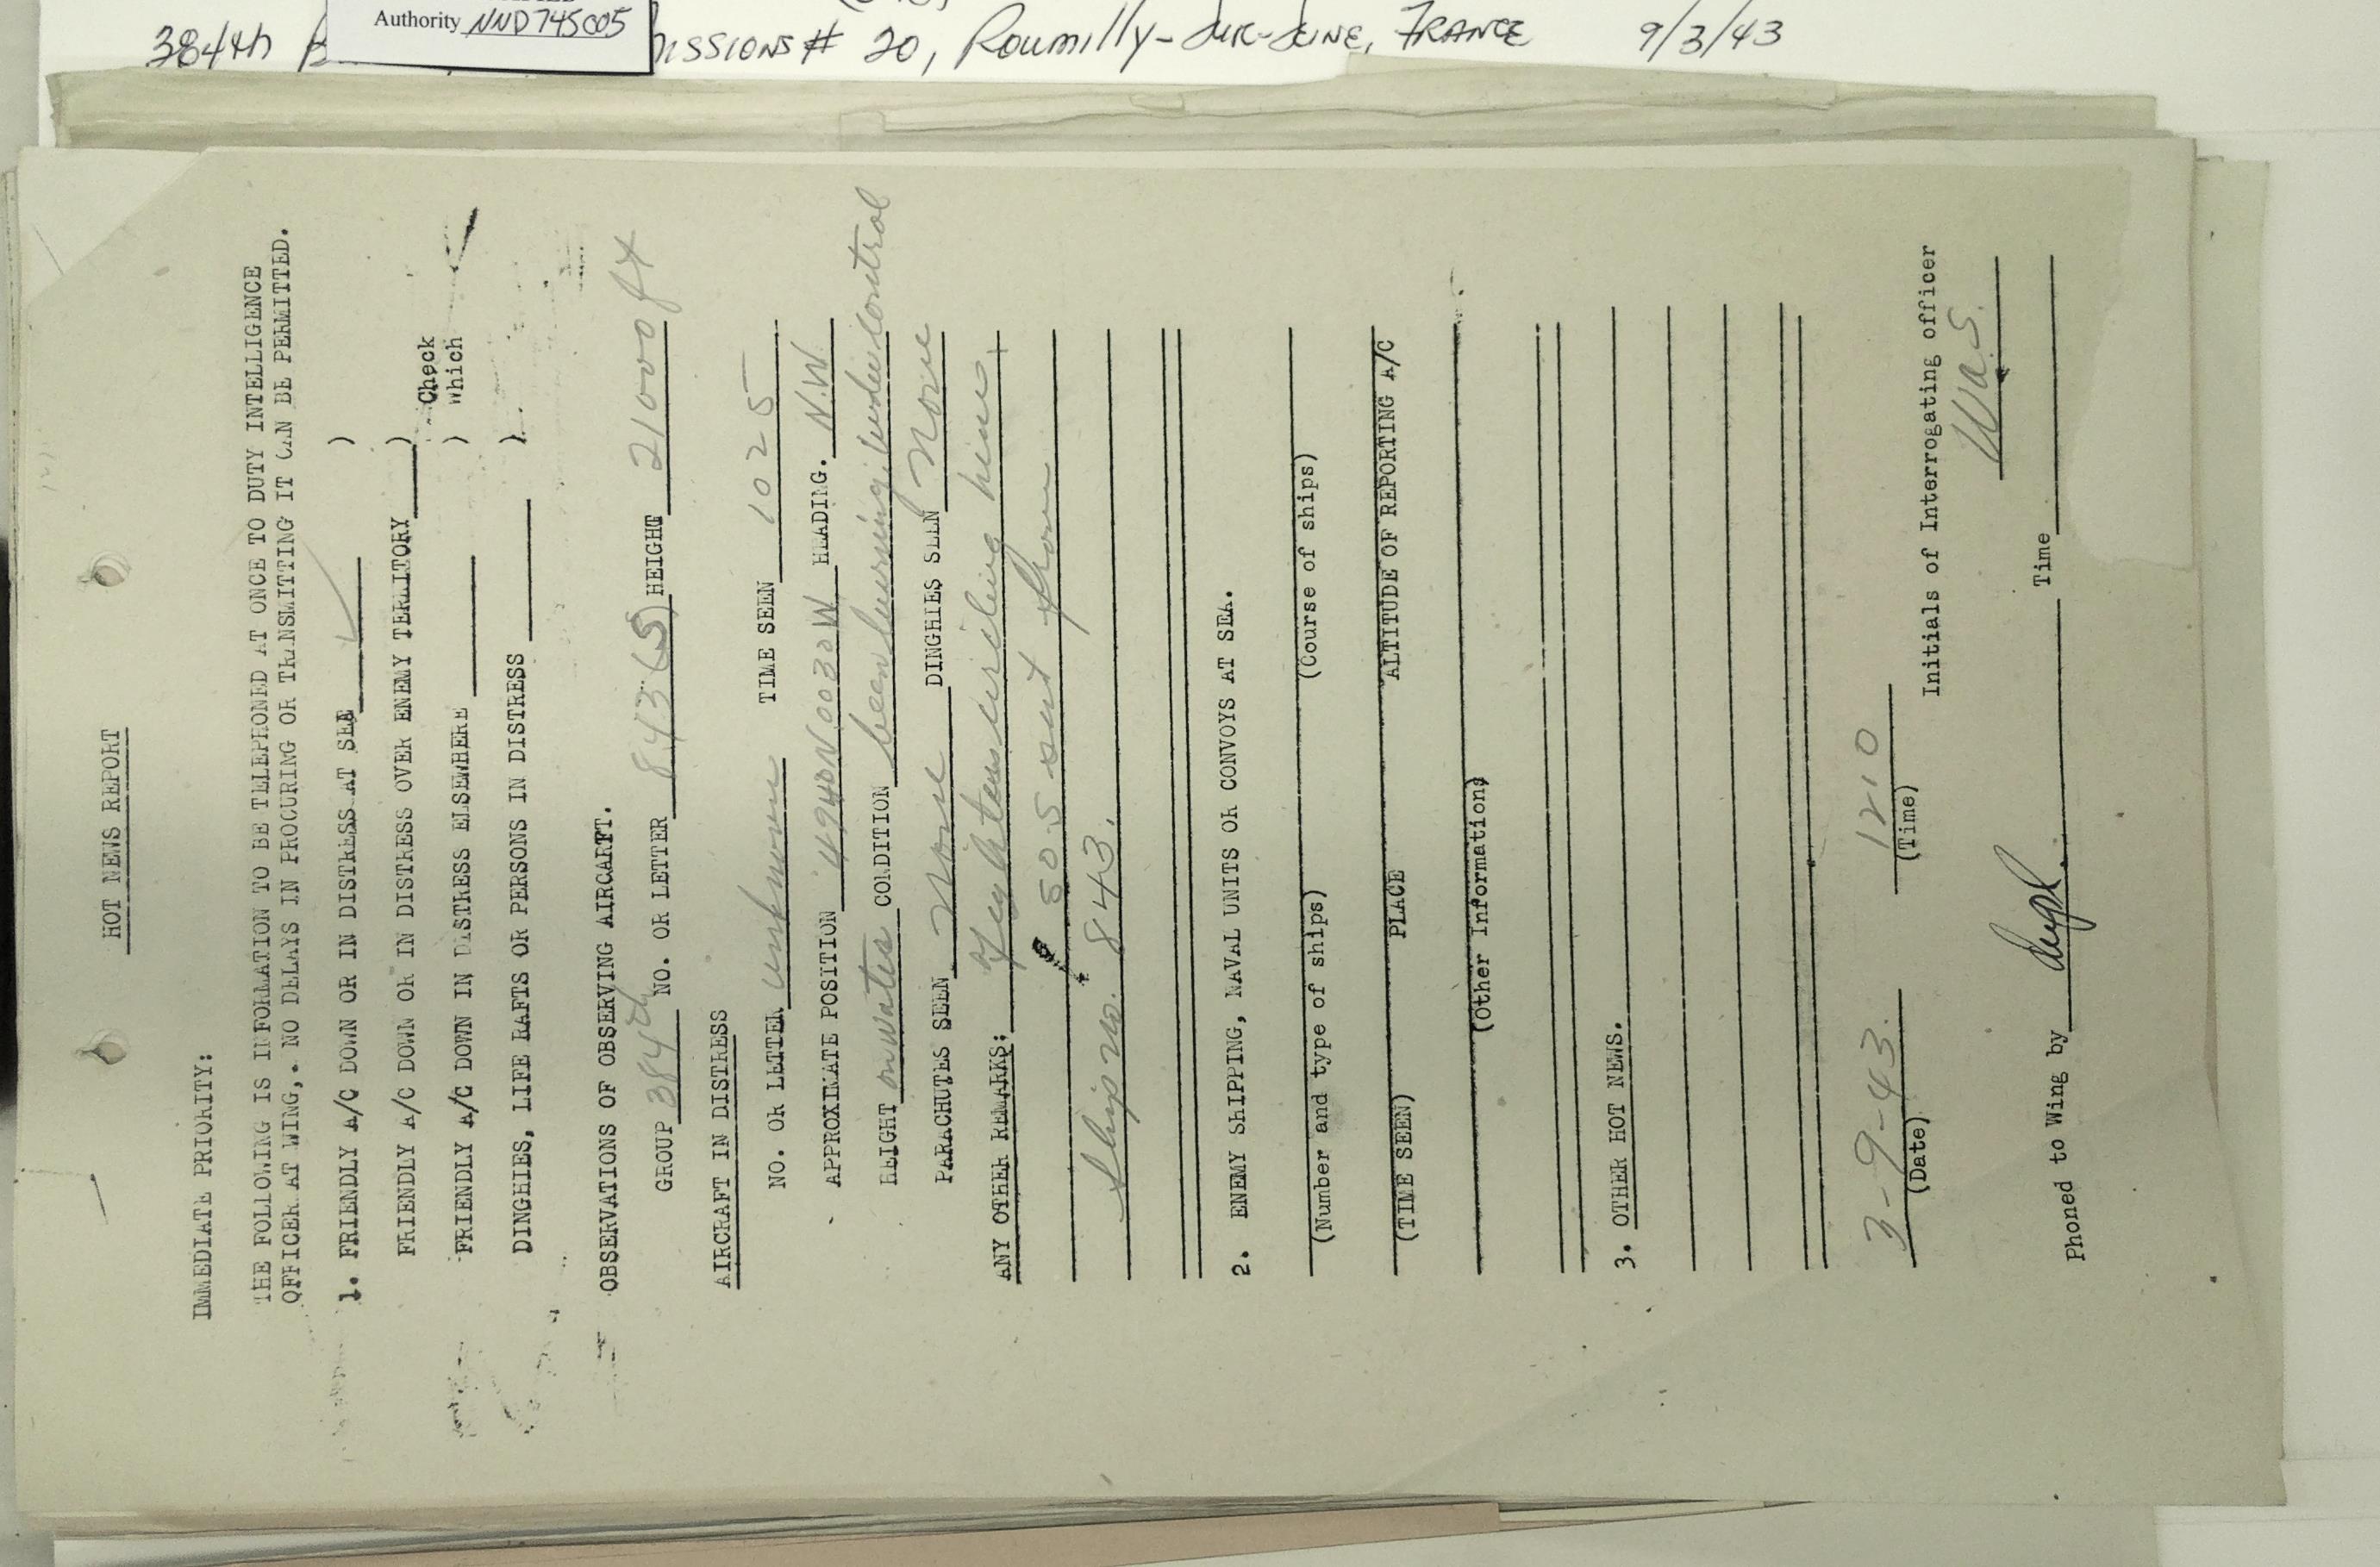 Authority NND745005
384th B
issions # 20, Roumilly-Sur-Seine, FRANCE 9/3/43
HOT NEWS REPORT
IMMEDIATE PRIORITY:
THE FOLLOWING IS INFORMATION TO BE TELEPHONED AT ONCE TO DUTY INTELLIGENCE
OFFICER AT WING,. NO DELAYS IN PROCURING OR TRANSMITTING IT CAN BE PERMITTED.
1. FRIENDLY A/C DOWN OR IN DISTRESS AT SEA ✓ )
FRIENDLY A/C DOWN OR IN DISTRESS OVER ENEMY TERRITORY ) Check
FRIENDLY A/C DOWN IN DISTRESS ELSEWHERE ) Which
DINGHIES, LIFE RAFTS OR PERSONS IN DISTRESS ).
OBSERVATIONS OF OBSERVING AIRCARFT.
GROUP 384th NO. OR LETTER 843 (S) HEIGHT 21000 ft
AIRCRAFT IN DISTRESS
NO. OR LETTER unknown TIME SEEN 1025
APPROXIMATE POSITION 4940N 0030W HEADING. N.W.
HEIGHT on water CONDITION been burning, under control
PARACHUTES SEEN None DINGHIES SEEN None
ANY OTHER REMARKS: Fighters circling him
S O S sent from
Ship no. 843.
2. ENEMY SHIPPING, NAVAL UNITS OR CONVOYS AT SEA.
(Number and type of ships) (Course of ships)
(TIME SEEN) PLACE ALTITUDE OF REPORTING A/C
(Other Information)
3. OTHER HOT NEWS.
3-9-43. 1210
(Date) (Time)
Initials of Interrogating officer
W.a.S.
Phoned to Wing by Time